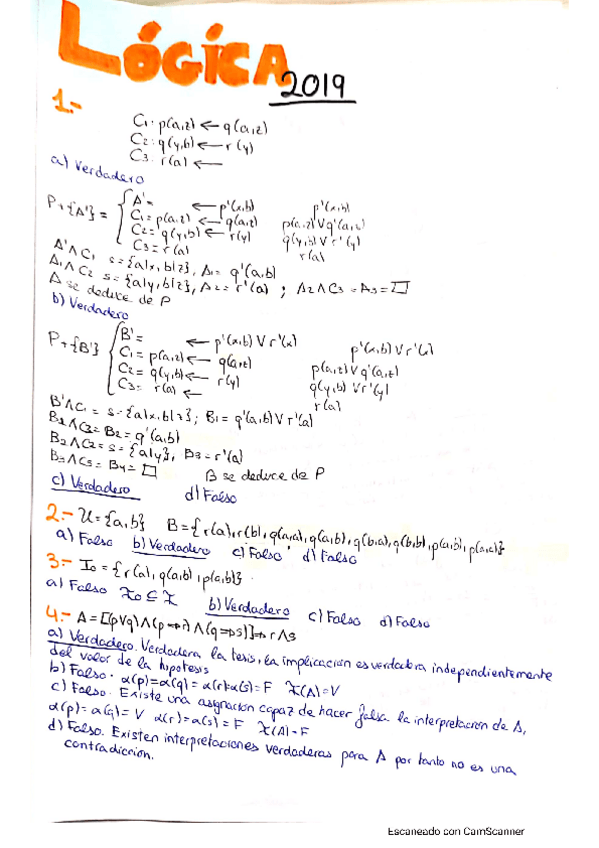 LÓGICA 2019
1.-
C₁: p(a,z) ← q(a,z)
C₂: q(y,b) ← r(y)
C₃: r(a) ←
a) Verdadero
P+{A'} = { A'= ← p'(x,b) p'(x,b)
C₁= p(a,z) ← q(a,z) p(a,z) V q'(a,z)
C₂= q(y,b) ← r(y) q(y,b) V r'(y)
C₃= r(a) r(a)
A'ΛC₁ s={a|x, b|z}, A₁= q'(a,b)
A₁ΛC₂ s={a|y, b|z}, A₂= r'(a) ; A₂ΛC₃ = A₃=□
A se deduce de P
b) Verdadero
P+{B'} { B'= ← p'(x,b) V r'(x) p'(x,b) V r'(x)
C₁= p(a,z) ← q(a,z) p(a,z) V q'(a,z)
C₂= q(y,b) ← r(y) q(y,b) V r'(y)
C₃= r(a) ← r(a)
B'ΛC₁ = s={a|x, b|z}; B₁= q'(a,b) V r'(a)
B₁ΛC₃= B₂= q'(a,b)
B₂ΛC₂= s={a|y}, B₃= r'(a)
B₃ΛC₃= B₄= □ B se deduce de P
c) Verdadero d) Falso
2.- U={a,b} B={r(a), r(b), q(a,a), q(a,b), q(b,a), q(b,b), p(a,b), p(a,a)}
a) Falso b) Verdadero c) Falso d) Falso
3.- I₀={r(a), q(a,b), p(a,b)}
a) Falso I₀ ⊆ I b) Verdadero c) Falso d) Falso
4.- A=[(pVq)Λ(p→r)Λ(q→s)]→rΛs
a) Verdadero. Verdadera la tesis, la implicación es verdadera independientemente
del valor de la hipotesis
b) Falso. α(p)=α(q)=α(r)=α(s)=F I(A)=V
c) Falso. Existe una asignacion capaz de hacer falsa la interpretacion de A,
α(p)=α(q)=V α(r)=α(s)=F I(A)=F
d) Falso. Existen interpretaciones verdaderas para A por tanto no es una
contradiccion.
Escaneado con CamScanner